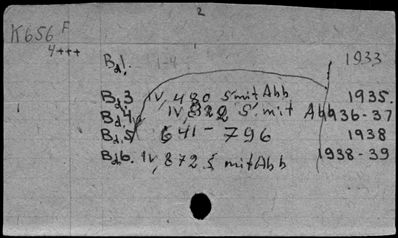 2
K656 F
4+++
Bd1. 1-4 1933
Bd.3 IV, 480 S mit Abb 1935.
Bd.4 IV, 822 S. mit Abb 36-37
Bd.5 641-796 1938
Bd.6. IV, 872. S mit Abb 1938-39